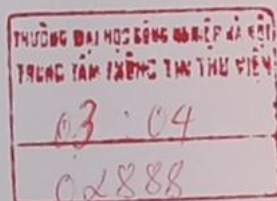 TRƯỜNG ĐẠI HỌC CÔNG NGHIỆP HÀ NỘI
TRUNG TÂM THÔNG TIN THƯ VIỆN
03 : 04
02888